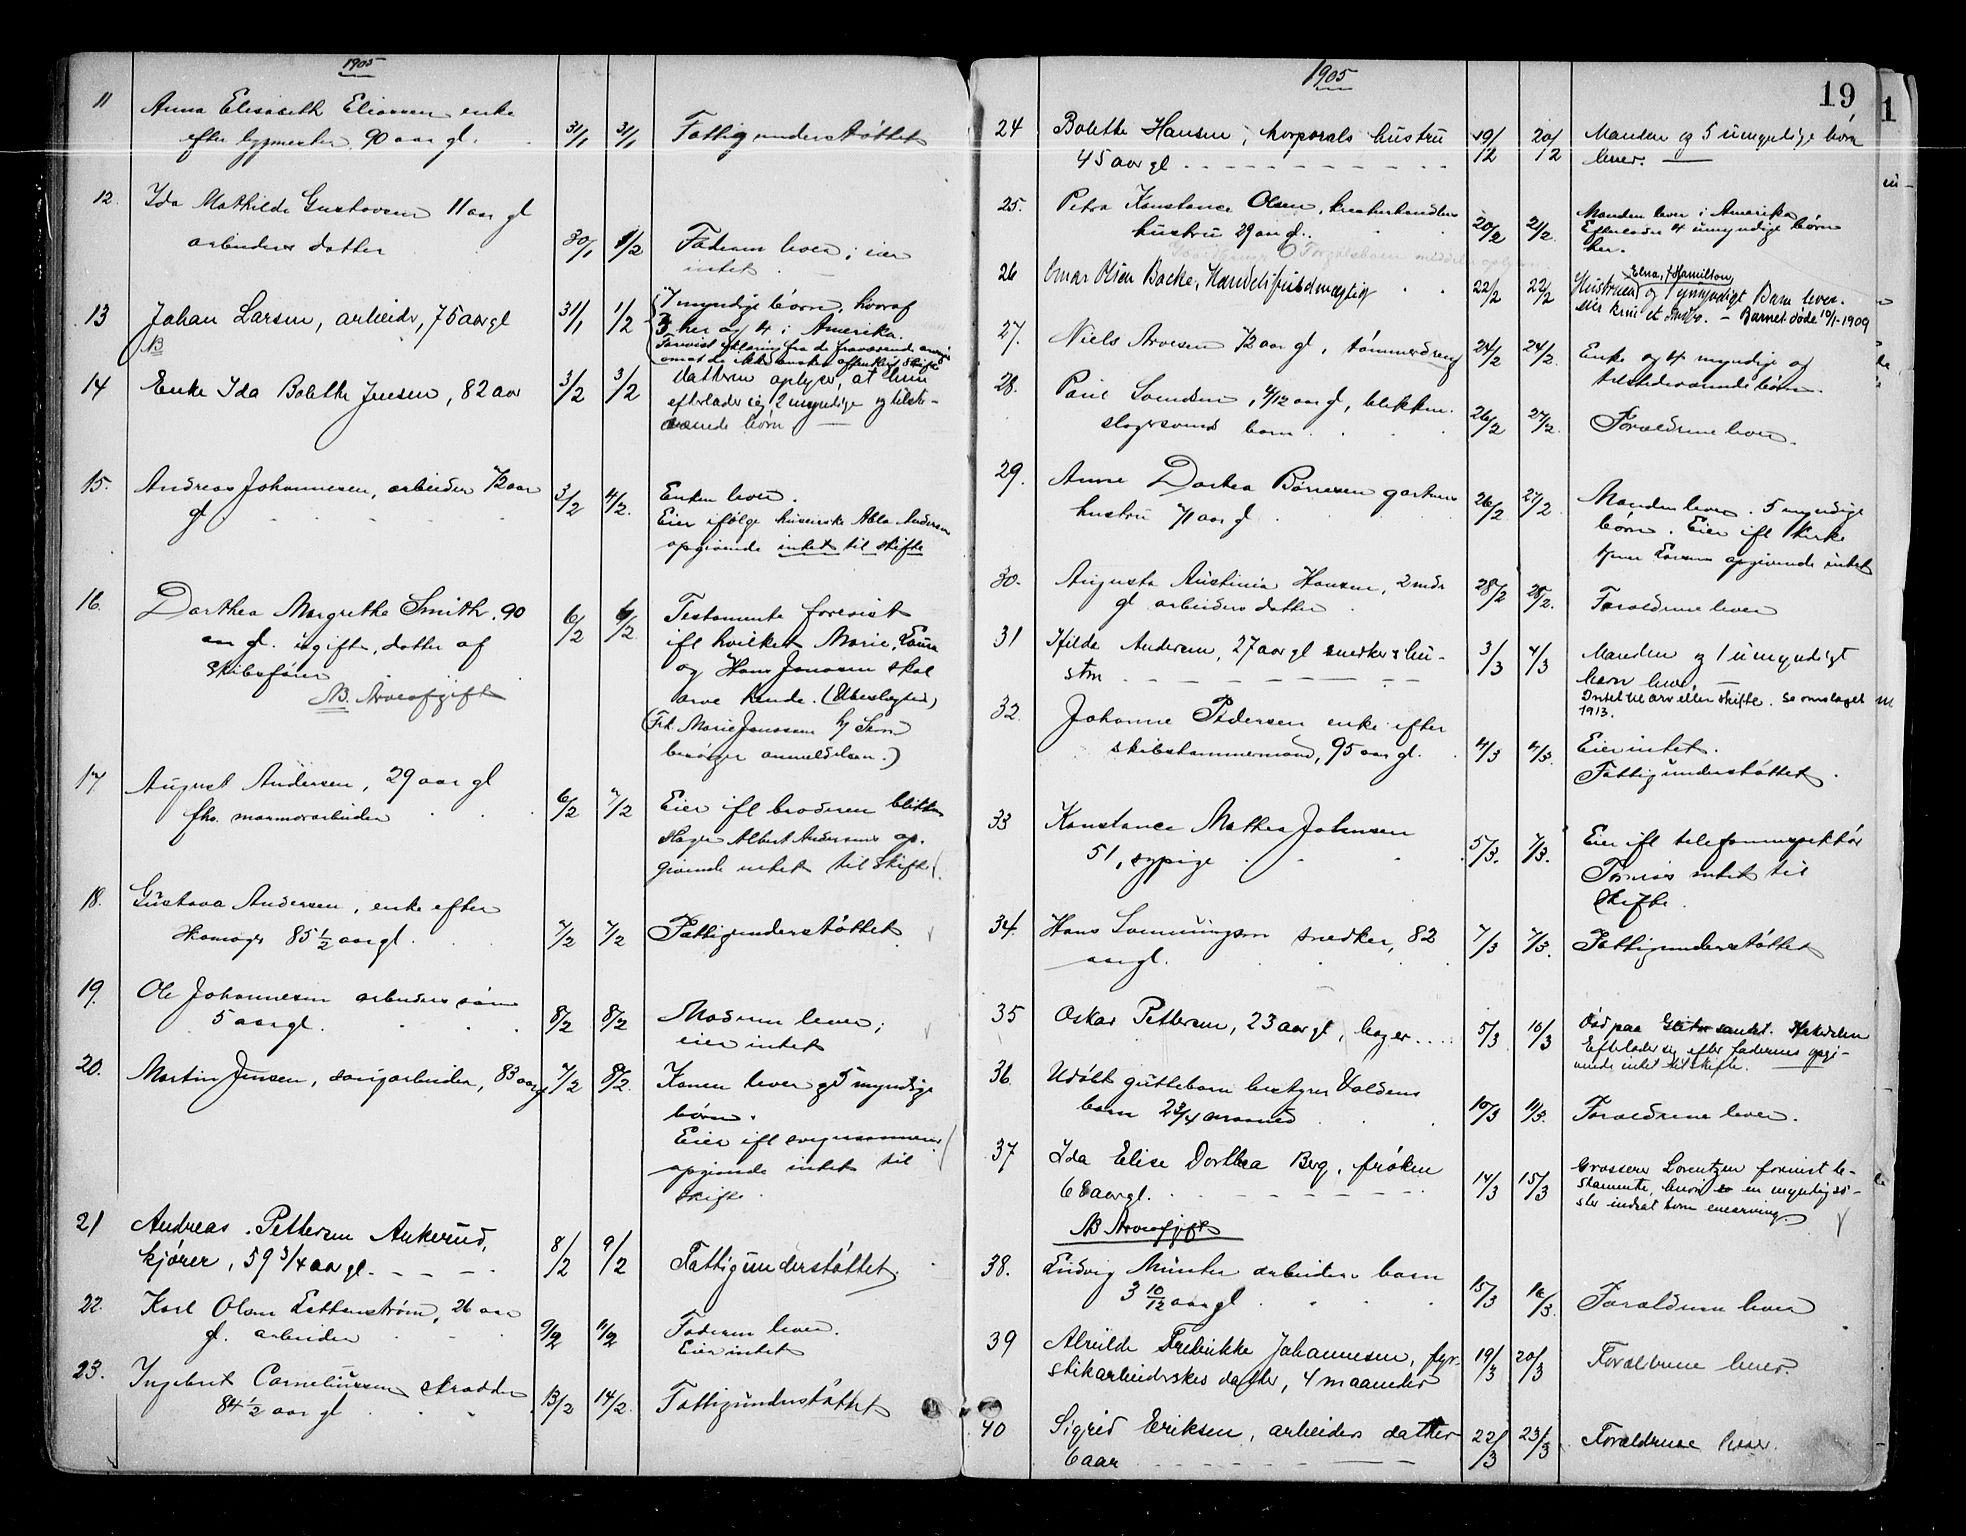 1905
11 Anna Elisabeth Eliassen enke
efter bygmester, 90 aar gl. 31/1 31/1 Fattigunderstøttet
12. Ida Mathilde Gustavsen 11 aar gl
arbeiders datter 30/1 1/2 Faderen lever; eier
intet
13 Johan Larsen, arbeider, 75 aar gl 31/1 1/2 7 myndige børn, hvoraf
NB 3 her og 4 i Amerika.
14 Enke Ida Bolette Jensen, 82 aar 3/2 3/2 Datteren oplyser, at hun
efterlader sig 2 myndige og tilste-
værende børn
15. Andreas Johannesen, arbeider 72 aar
gl 3/2 4/2. Enken lever.
Eier ifølge husenske Abla Andersen
opgivende intet til skifte
16. Dorthea Margrethe Smith, 90
aar gl. ugift, datter af
Skibsfører 6/2 6/2 Testamente forevist
ifl hvilket Marie, Laura
og Hans Jonassen skal
arve hende. (Ubeslægted)
NB. Arveafgift
(Frk. Marie Jonassen
besørger anmeldelsen.)
17 August Andersen, 29 aar gl
fhv. marmorarbeider 6/2 7/2 Eier ifl broderen blikken
slager Albert Andersens op-
givende intet til skifte
18. Gustava Andersen, enke efter
skomager 85 1/2 aar gl. 7/2 7/2 Fattigunderstøttet
19. Ole Johannesen arbeiders søn
5 aar gl. 8/2 8/2 Moderen lever;
eier intet
20. Martin Jensen, saugarbeider, 83 aar gl 7/2 8/2. Konen lever og 5 myndige
børn.
Eier ifl svigersønnens
opgivende intet til
skifte.
21 Andreas Pettersen Ankerud,
kjører, 59 3/4 aar gl. 8/2 9/2 Fattigunderstøttet.
22. Karl Olson Lettenstrøm, 26 aar
gl. arbeider 9/2 11/2 Faderen lever.
Eier intet
23. Ingebret Corneliussen skrædder
84 1/2 aar gl 13/2 14/2. Fattigunderstøttet
1905
19
24 Bolette Hansen, korporals hustru
45 aar gl 19/12 20/12 Manden og 5 umyndige børn
lever.
25. Petra Konstance Olsen, kreaturhandlers
hustru 29 aar gl. 20/2 21/2. Manden lever i Amerika
Efterlader 4 umyndige børn
her.
26 Omar Olsen Bache, Handelsfuldmægtig 22/2 22/2 Hustruen og 1 umyndigt Barn lever.
Elna, f. Hamilton
Barnet døde 10/1-1909
27. Niels Arvesen 72 aar gl, tømmerdreng 24/2 24/2. Enke og 4 myndige og
tilstedeværende børn.
28. Paul Svendsen, 4/12 aar gl, blikken-
slagersvends barn 26/2 27/2. Forældrene lever.
29. Anne Dortea Børresen gartners
hustru 71 aar gl 26/2 27/2 Manden lever. 5 myndige
børn. Eier ifl kirke
tjener Larsens opgivende intet
30. Augusta Austinia Hansen, 2 mdr
gl arbeiders datter 28/2 28/2. Forældrene lever
31 Hilda Andersen, 27 aar gl snedkers hu-
stru 3/3 4/3 Manden og 1 umyndigt
barn lever,
Intet til arv eller skifte. Se omslaget
1913.
32. Johanne Pedersen enke efter
skibstømmermand, 95 aar gl. 4/3 4/3. Eier intet.
Fattigunderstøttet.
33 Konstance Mathea Johnsen
51, sypige 5/3. 7/3. Eier ifl telefoninspektør
intet til
skifte.
34. Hans Svenningsen snedker, 82
aar gl. 7/3 7/3. Fattigunderstøttet
35 Oskar Pettersen, 23 aar gl, bager 5/3 10/3 Død paa
Efterlader sig efter faderens opgi-
vende intet til skifte.
36. Udøbt guttebarn bestyrer Voldens
barn 2 3/4 maaned 10/3 11/3. Forældrene lever.
37 Ida Elise Dorthea Berg, frøken
68 aar gl. 14/3 15/3 Grosserer Lorentzen forevist te-
stamente, hvori en myndig sø-
ster indsat som enearving
NB Arveafgift
38. Ludvig Münter arbeiders barn
3 10/12 aar gl 15/3 16/3. Forældrene lever
39 Alvilde Fredrikke Johannesen, fyr-
stikarbeiderskes datter, 4 maaneder 19/3 20/3 Forældrene lever.
40 Sigrid Eriksen, arbeiders datter
6 aar 22/3 23/3 Forældrene lever.